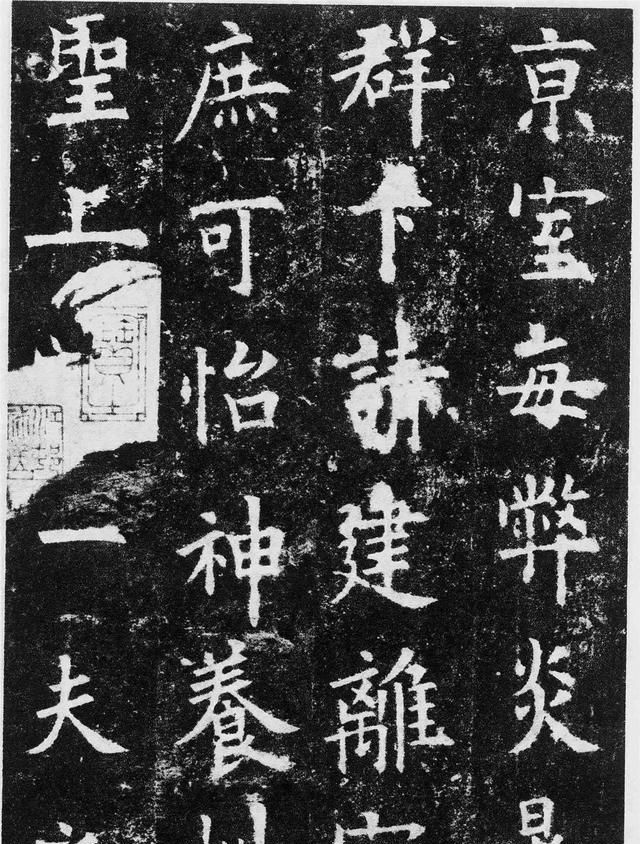 京室每弊炎
群下請建離
庶可怡神養
聖上一夫